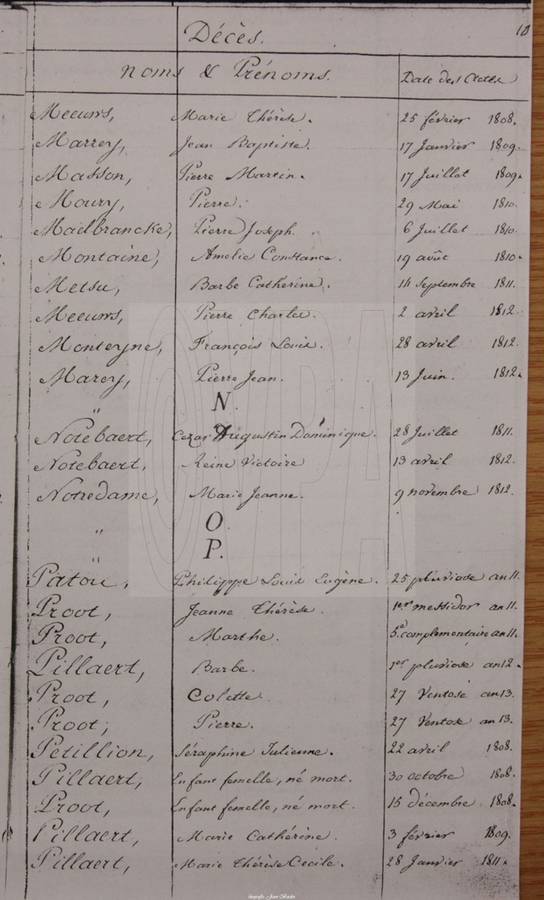 10
Décès.
noms & Prénoms. Date des Actes
Meeuws, Marie Thérèse. 25 février 1808.
Marrey, Jean Baptiste. 17 Janvier 1809.
Masson, Pierre Martin. 17 Juillet 1809.
Moury, Pierre. 29 Mai 1810.
Mailbrancke, Pierre Joseph. 6 Juillet 1810.
Montaine, Amélie Constance. 19 août 1810.
Metsu, Barbe Catherine. 14 Septembre 1811.
Meeuws, Pierre Charles. 2 avril 1812.
Monteyne, François Louis. 28 avril 1812.
Marey, Pierre Jean. 13 Juin. 1812.
" N.
Notebaert, Cezar Augustin Dominique. 28 Juillet 1811.
Notebaert, Reine Victoire 13 avril 1812.
Notredame, Marie Jeanne. 9 novembre 1812.
" O.
" P.
Patou, Philippe Louis Eugène. 25 pluviose an 11.
Proot, Jeanne Thérèse. 1er messidor an 11.
Proot, Marthe. 5e complémentaire an 11.
Pillaert, Barbe. 1er pluviose an 12.
Proot, Colette 27 Ventose an 13.
Proot, Pierre. 27 Ventose an 13.
Petillion, Séraphine Julienne. 22 avril 1808.
Pillaert, Enfant femelle, né mort. 30 octobre 1808.
Proot, Enfant femelle, né mort. 15 décembre 1808.
Pillaert, Marie Cathérine. 3 février 1809.
Pillaert, Marie Thérèse Cecile. 28 Janvier 1811.